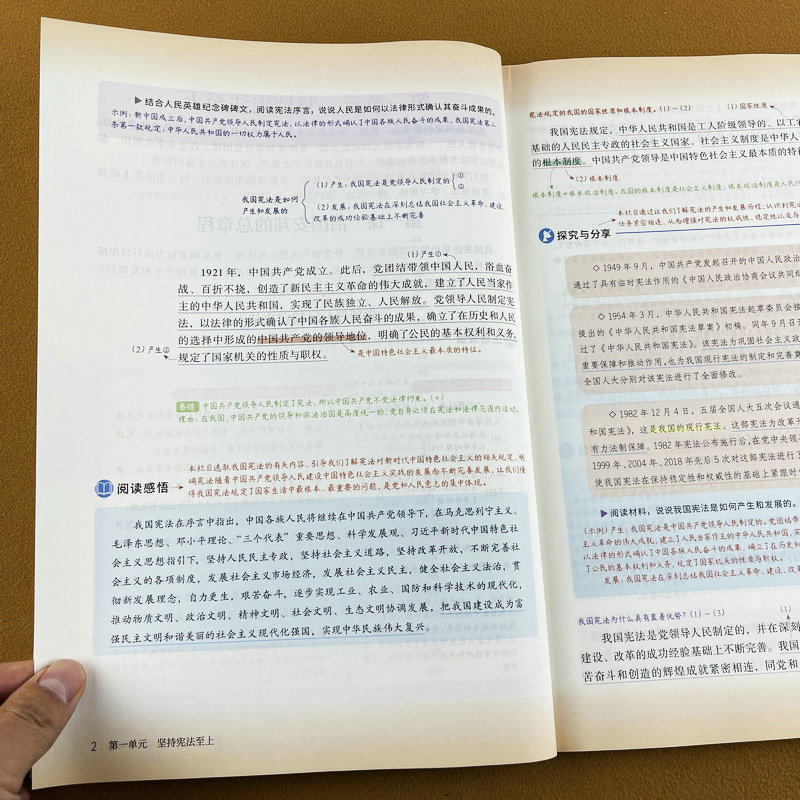 ▶结合人民英雄纪念碑碑文，阅读宪法序言，说说人民是如何以法律形式确认其奋斗成果的。
示例：新中国成立后，中国共产党领导人民制定宪法，以法律的形式确认了中国各族人民奋斗的成果，我国宪法第二
条第一款规定：中华人民共和国的一切权力属于人民。
我国宪法是如何
产生和发展的
（1）产生：我国宪法是党领导人民制定的
①
②
（2）发展：我国宪法在深刻总结我国社会主义革命、建设、
改革的成功经验基础上不断完善
（1）产生①
1921 年，中国共产党成立。此后，党团结带领中国人民，浴血奋
战、百折不挠，创造了新民主主义革命的伟大成就，建立了人民当家作
主的中华人民共和国，实现了民族独立、人民解放。党领导人民制定宪
法，以法律的形式确认了中国各族人民奋斗的成果，确立了在历史和人民
的选择中形成的中国共产党的领导地位，明确了公民的基本权利和义务，
（2）产生②
规定了国家机关的性质与职权。
是中国特色社会主义最本质的特征。
易错 中国共产党领导人民制定了宪法，所以中国共产党不受法律约束。（×）
理由：在我国，中国共产党的领导和依法治国是高度统一的，党自身必须在宪法和法律范围内活动。
本栏目选取我国宪法的有关内容，引导我们了解宪法对新时代中国特色社会主义的相关规定，明
确宪法随着中国共产党领导人民建设中国特色社会主义实践的发展而不断完善发展，让我们懂
得我国宪法规定了国家生活中最根本、最重要的问题，是党和人民意志的集中体现。
阅读感悟
我国宪法在序言中指出，中国各族人民将继续在中国共产党领导下，在马克思列宁主义、
毛泽东思想、邓小平理论、“三个代表”重要思想、科学发展观、习近平新时代中国特色社
会主义思想指引下，坚持人民民主专政，坚持社会主义道路，坚持改革开放，不断完善社
会主义的各项制度，发展社会主义市场经济，发展社会主义民主，健全社会主义法治，贯
彻新发展理念，自力更生，艰苦奋斗，逐步实现工业、农业、国防和科学技术的现代化，
推动物质文明、政治文明、精神文明、社会文明、生态文明协调发展，把我国建设成为富
强民主文明和谐美丽的社会主义现代化强国，实现中华民族伟大复兴。
2 第一单元 坚持宪法至上
宪法规定的我国的国家性质和根本制度。（1）~（2）
（1）国家性质
我国宪法规定，中华人民共和国是工人阶级领导的、以工农
基础的人民民主专政的社会主义国家。社会主义制度是中华人
的根本制度。中国共产党领导是中国特色社会主义最本质的特
（2）根本制度
根本制度≠根本政治制度。我国的根本制度是社会主义制度，根本政治制度是人民
本栏目通过让我们了解宪法的产生和发展历程，认识到宪法
任务紧密相连，从而增强对宪法的权威性、稳定性以及与
探究与分享
◇ 1949 年 9 月，中国共产党发起召开的中国人民政治
通过了具有临时宪法作用的《中国人民政治协商会议共同
◇ 1954 年 3 月，中华人民共和国宪法起草委员会接
提出的《中华人民共和国宪法草案》初稿。同年 9 月召
过了《中华人民共和国宪法》。该宪法为巩固社会主义政
重要保障和推动作用，也为我国现行宪法的制定和完善
全国人大分别对该宪法进行了全面修改。
◇ 1982 年 12 月 4 日，五届全国人大五次会议通
和国宪法》，这是我国的现行宪法。这部宪法为改革开
有力法制保障。1982 年宪法公布施行后，在党中央领
1999 年、2004 年、2018 年先后 5 次对这部宪法进行了
使我国宪法在保持稳定性和权威性的基础上紧跟时
▶阅读材料，说说我国宪法是如何产生和发展的。
（示例）产生：我国宪法是中国共产党领导人民制定的。党团结带
主义革命的伟大成就，建立了人民当家作主的中华人民共和国，实
以法律的形式确认了中国各族人民奋斗的成果，确立了在历史和
了公民的基本权利和义务，规定了国家机关的性质与职权。
发展：我国宪法在深刻总结我国社会主义革命、建设、改
我国宪法为什么具有显著优势？（1）~（3）
（1）
我国宪法是党领导人民制定的，并在深刻
建设、改革的成功经验基础上不断完善。我国
苦奋斗和创造的辉煌成就紧密相连，同党和